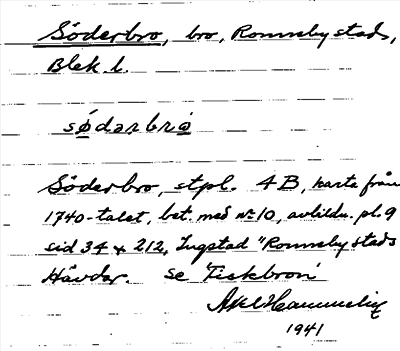 Söderbro, bro, Ronneby stad,
Blek. l.
södərbrö
Söderbro, stpl. 4B, karta från
1740-talet, bet. med nr 10, avbildn. pl. 9
sid 34 & 212, Ingstad "Ronneby stads
Hävder. se 'Fiskbron'
Axel Hammelin
1941